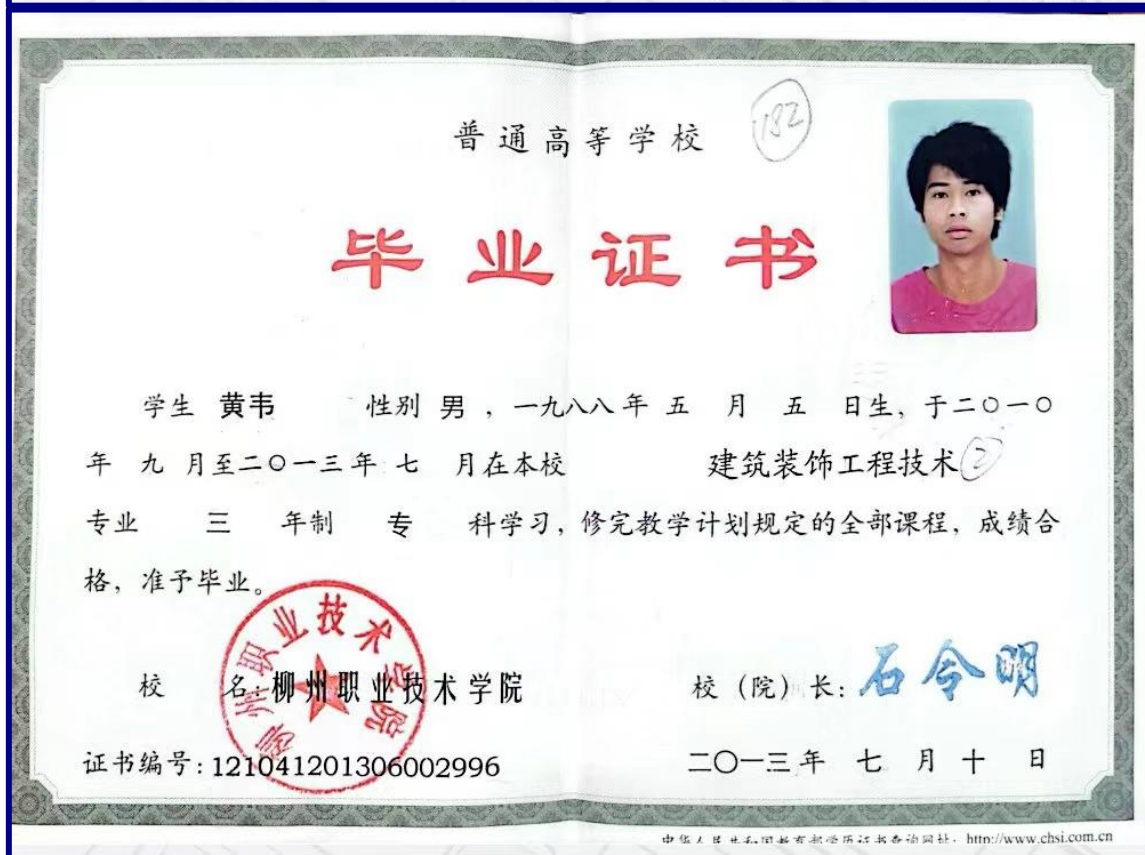 普通高等学校
182
毕业证书
学生 黄韦 性别 男 ，一九八八年 五 月 五 日生，于二〇一〇
年 九 月至二〇一三年 七 月在本校 建筑装饰工程技术 2
专业 三 年制 专 科学习，修完教学计划规定的全部课程，成绩合
格，准予毕业。
柳州职业技术学院
校 名：柳州职业技术学院 校（院）长：石令明
证书编号：121041201306002996 二〇一三年 七 月 十 日
中华人民共和国教育部学历证书查询网址：http://www.chsi.com.cn